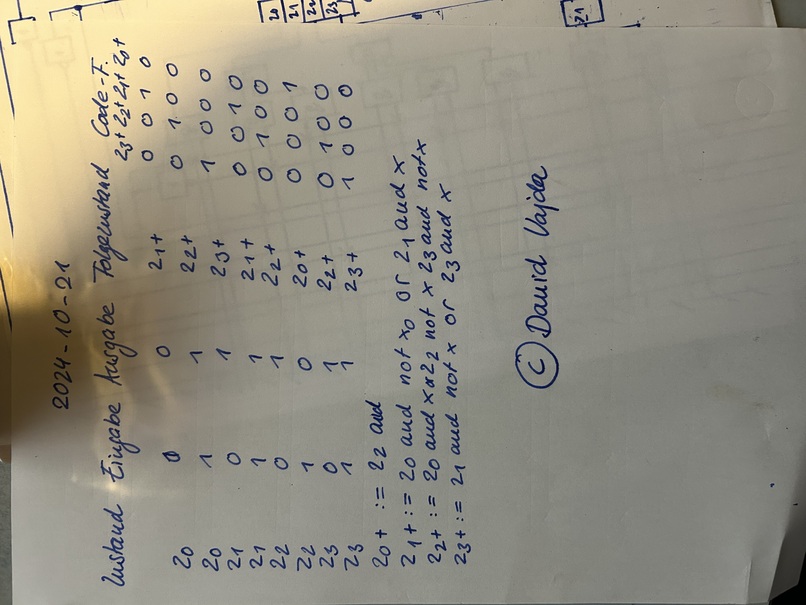 z0
z1
z2
z3
z1
2024-10-21
Zustand Eingabe Ausgabe Folgezustand Code-F.
z3+ z2+ z1+ z0+
z0 0 0 z1+ 0 0 1 0
z0 1 1 z2+ 0 1 0 0
z1 0 1 z3+ 1 0 0 0
z1 1 1 z1+ 0 0 1 0
z2 0 1 z2+ 0 1 0 0
z2 1 0 z0+ 0 0 0 1
z3 0 1 z2+ 0 1 0 0
z3 1 1 z3+ 1 0 0 0
z0+ := z2 and
z1+ := z0 and not x0 or z1 and x
z2+ := z0 and x or z2 not x z3 and not x
z3+ := z1 and not x or z3 and x
© David Vajda